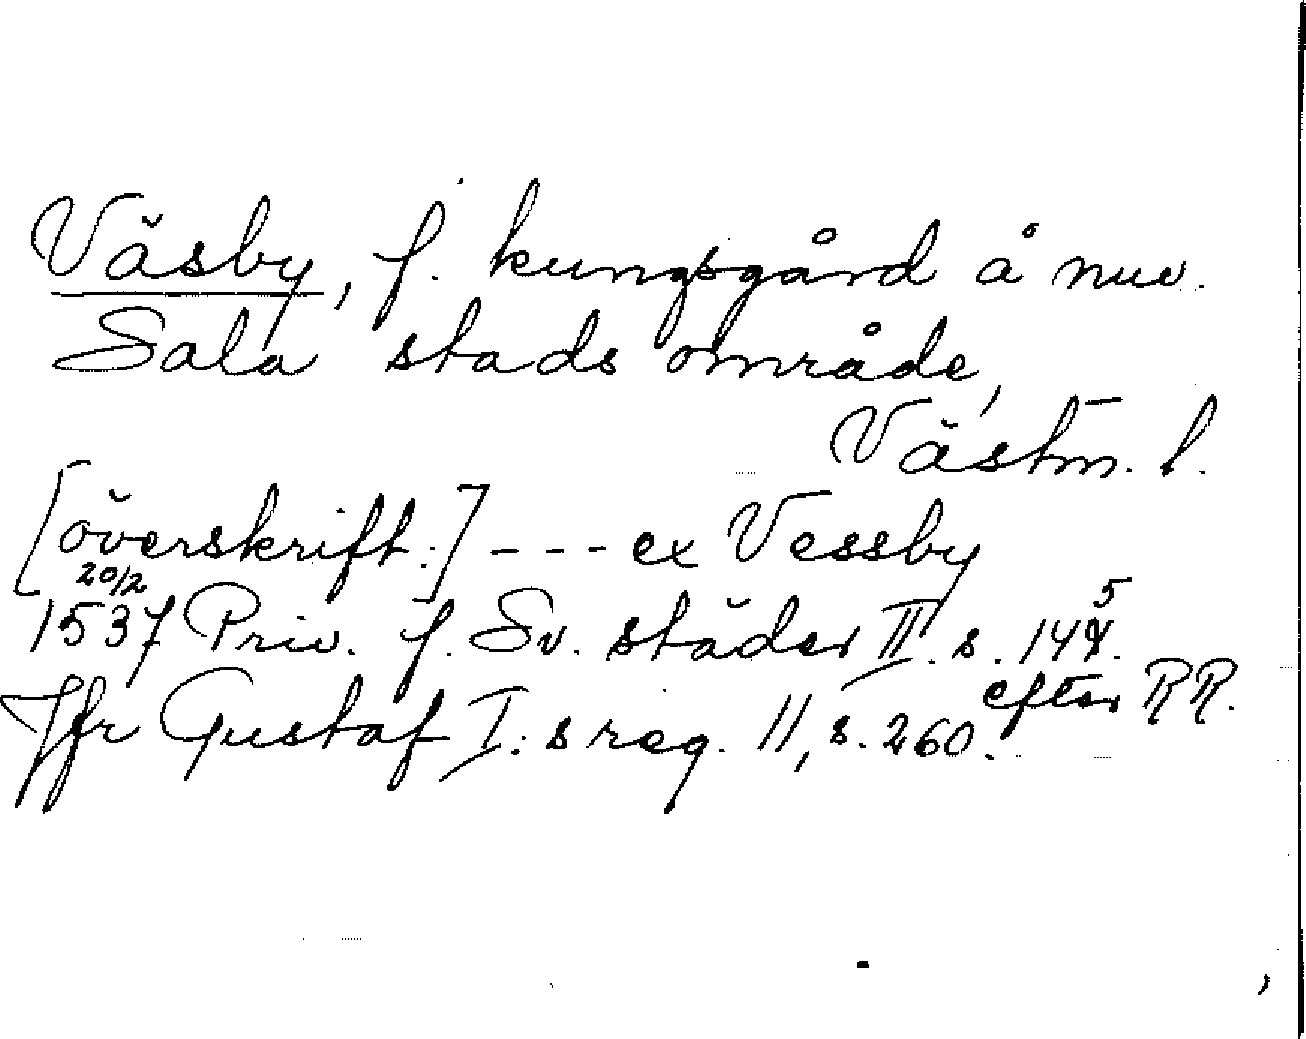 Väsby, f. kungsgård å nuv.
Sala stads område,
Västm. l.
[överskrift:] - - - ex Vessby
20/2
1537 Priv. f. Sv. städer II. s. 145.
efter RR.
Jfr Gustaf I:s reg. 11, s. 260.